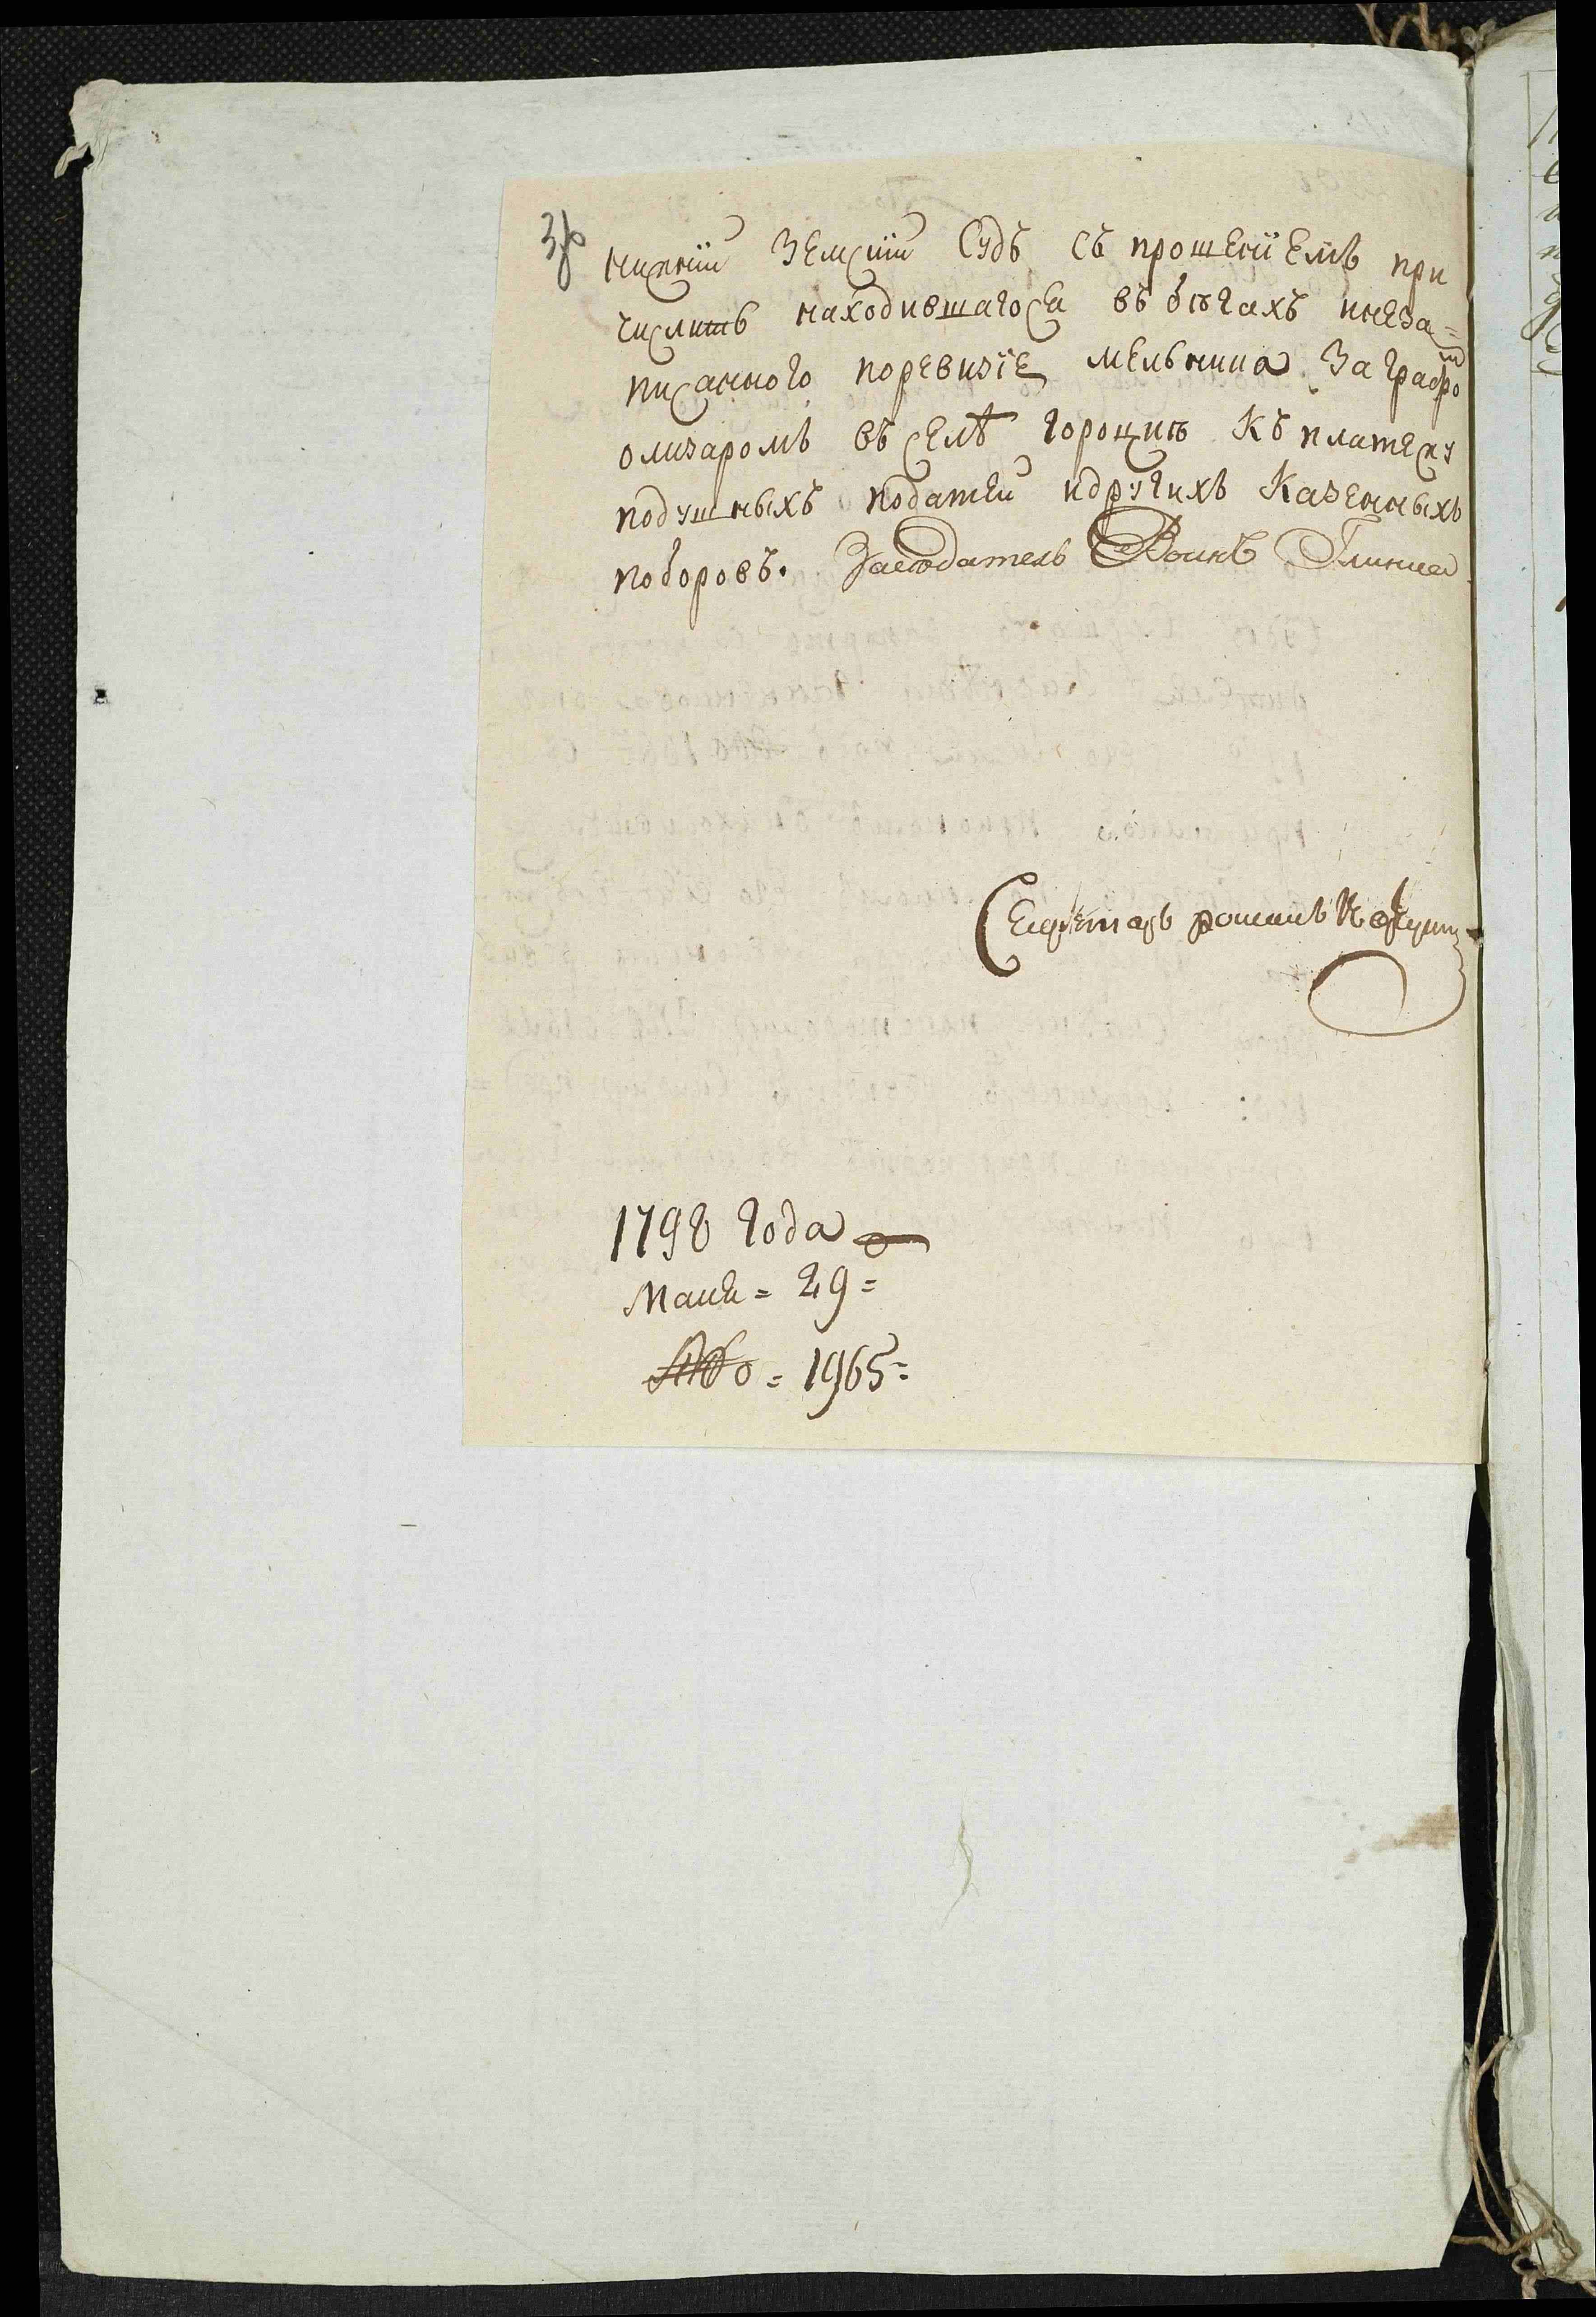 нижнїй Земскїй Судъ съ прошенїемъ при
числить находившагося въ бѣгахъ инеза=
писанного поревизїе мельника за графо
олизаромъ въ селѣ горощкѣ Къ платежу
подушныхъ податей идругихъ Казенныхъ
поборовъ. Заседатель Воинъ Глинка
Секретарь романъ
1798 года
Маия = 29 =
№о = 1965 =